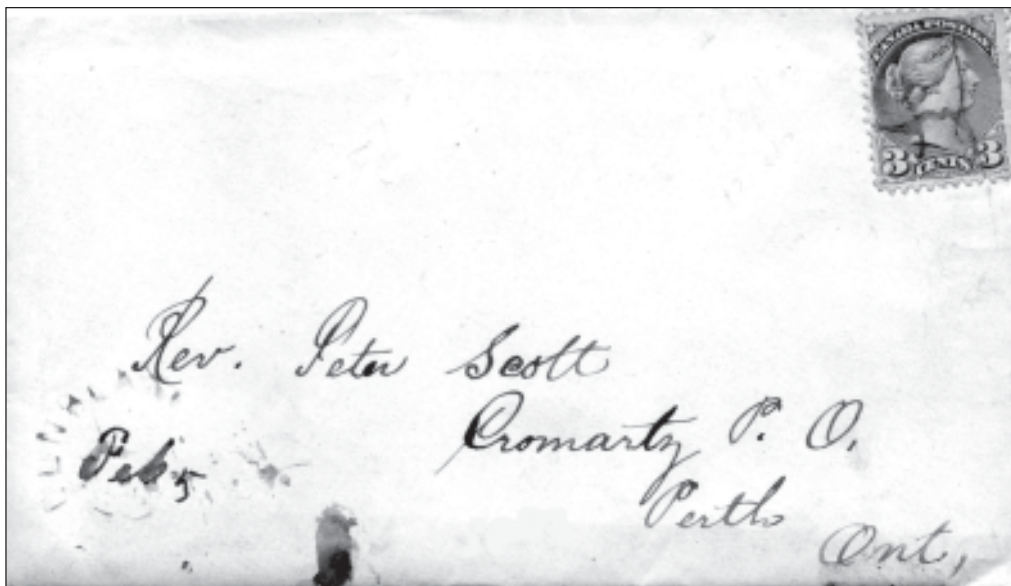 CANADA POSTAGE
3 CENTS 3
Rev. Peter Scott
Cromarty P. O.
Feb 5
Perth
Ont,